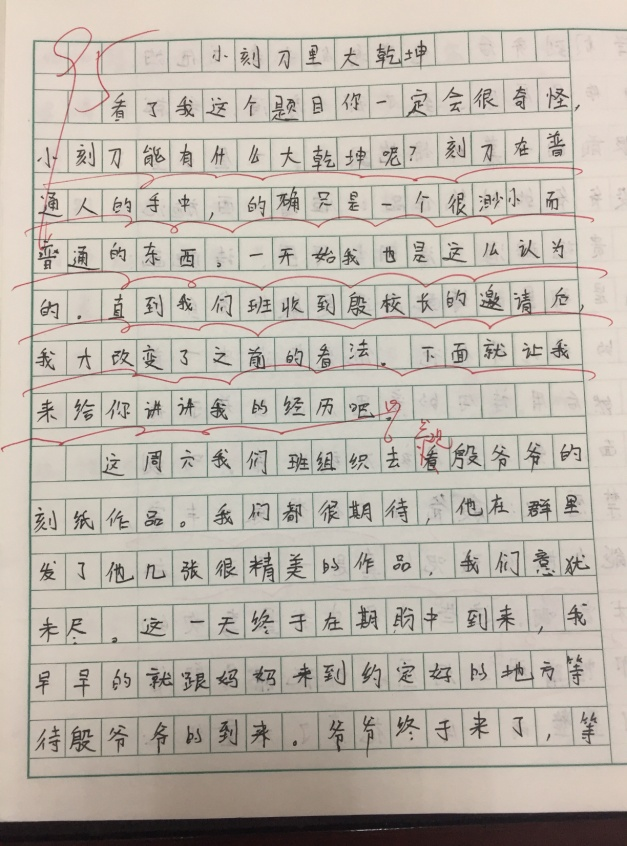 95
小刻刀里大乾坤
看了我这个题目你一定会很奇怪，
小刻刀能有什么大乾坤呢？刻刀在普
通人的手中，的确只是一个很渺小而
普通的东西。一开始我也是这么认为
的。直到我们班收到殷校长的邀请
我才改变了之前的看法。下面就让我
来给你讲讲我的经历吧
这周六我们班组织去看殷爷爷的
刻纸作品。我们都很期待，他在群里
发了他几张很精美的作品，我们意犹
未尽。这一天终于在期盼中到来，我
早早的就跟妈妈来到约定好的地方等
待殷爷爷的到来。爷爷终于来了，等